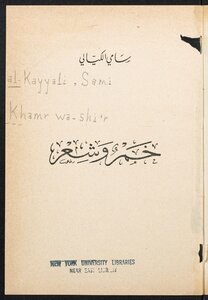 سامي الكيالي
al-Kayyali, Sami
Khamr wa-shi'r
خمر وشعر
NEW YORK UNIVERSITY LIBRARIES
NEAR EAST LIBRARY